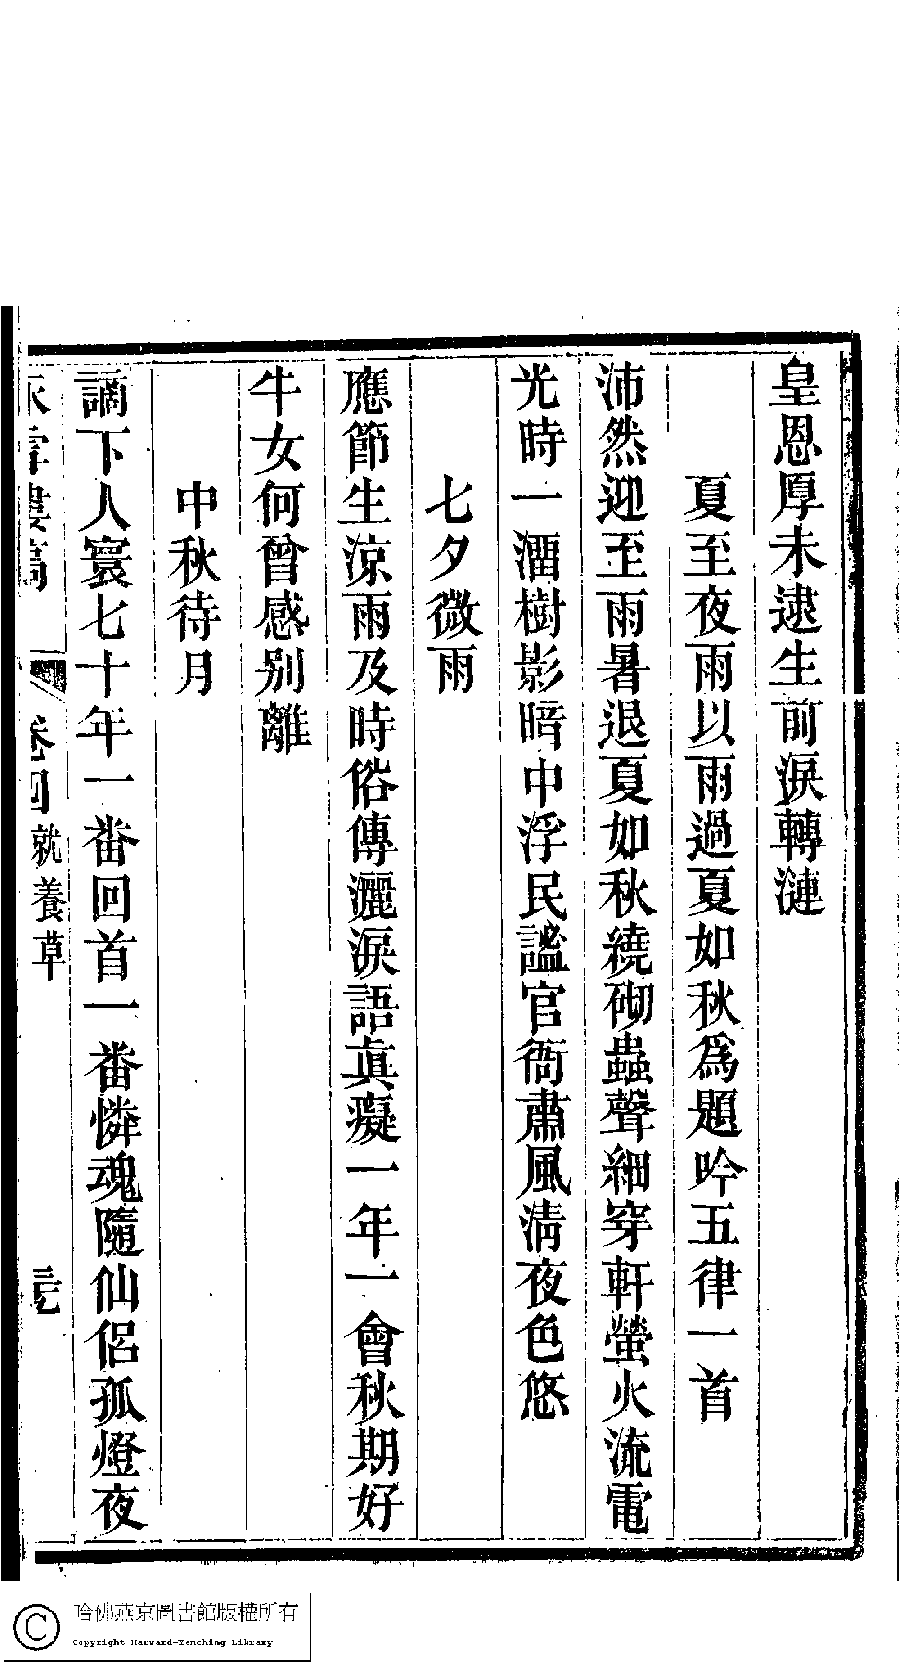 皇恩厚未逮生前淚轉漣
夏至夜雨以雨過夏如秋為題吟五律一首
沛然迎至雨暑退夏如秋繞砌蟲聲細穿軒螢火流電
光時一洒樹影暗中浮民謐官衙肅風淸夜色悠
七夕微雨
應節生涼雨及時俗傳灑淚語眞癡一年一會秋期好
牛女何曾感别離
中秋待月
謫下人寰七十年一番回首一番憐魂隨仙侶孤燈夜
卷四就養草
哈佛燕京圖書館版權所有
Copyright Harvard-Yenching Library